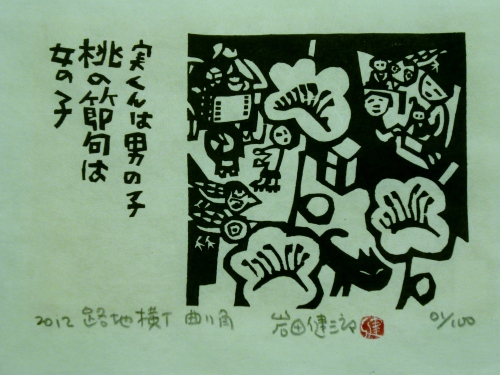 実くんは男の子
桃の節句は
女の子
2012 路地横丁 曲り角
岩田健三郎
健
01/100